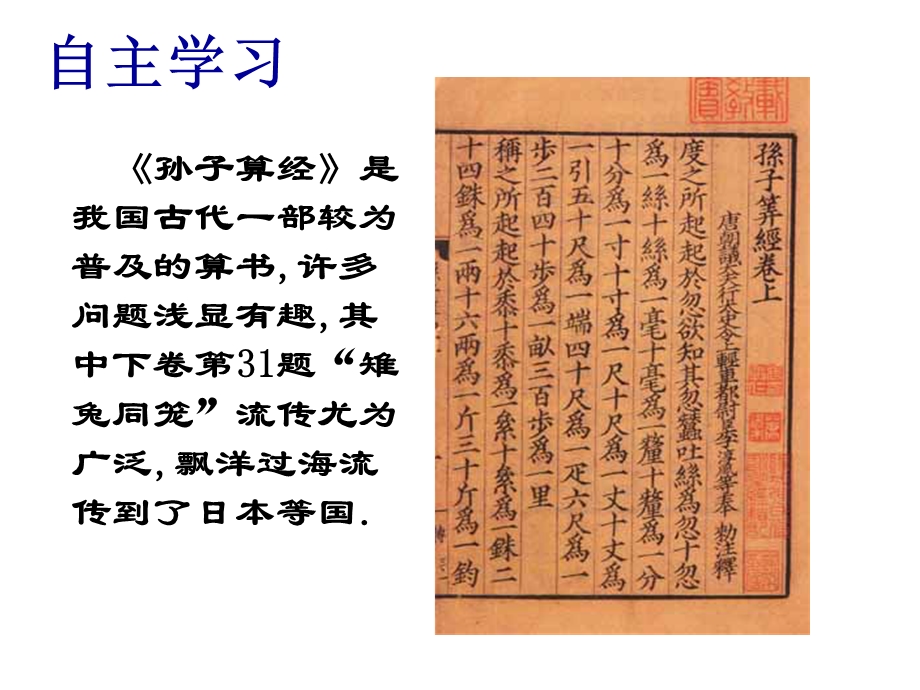 自主学习
《孙子算经》是
我国古代一部较为
普及的算书,许多
问题浅显有趣,其
中下卷第31题“雉
兔同笼”流传尤为
广泛,飘洋过海流
传到了日本等国.
孫子算經卷上
唐朝議大夫行太史令上輕車都尉臣李淳風等奉 勅注釋
度之所起起於忽欲知其忽蠶吐絲為忽十忽
為一絲十絲為一毫十毫為一釐十釐為一分
十分為一寸十寸為一尺十尺為一丈十丈為
一引五十尺為一端四十尺為一疋六尺為一
步二百四十步為一畝三百步為一里
稱之所起起於黍十黍為一絫十絫為一銖二
十四銖為一兩十六兩為一斤三十斤為一鈞